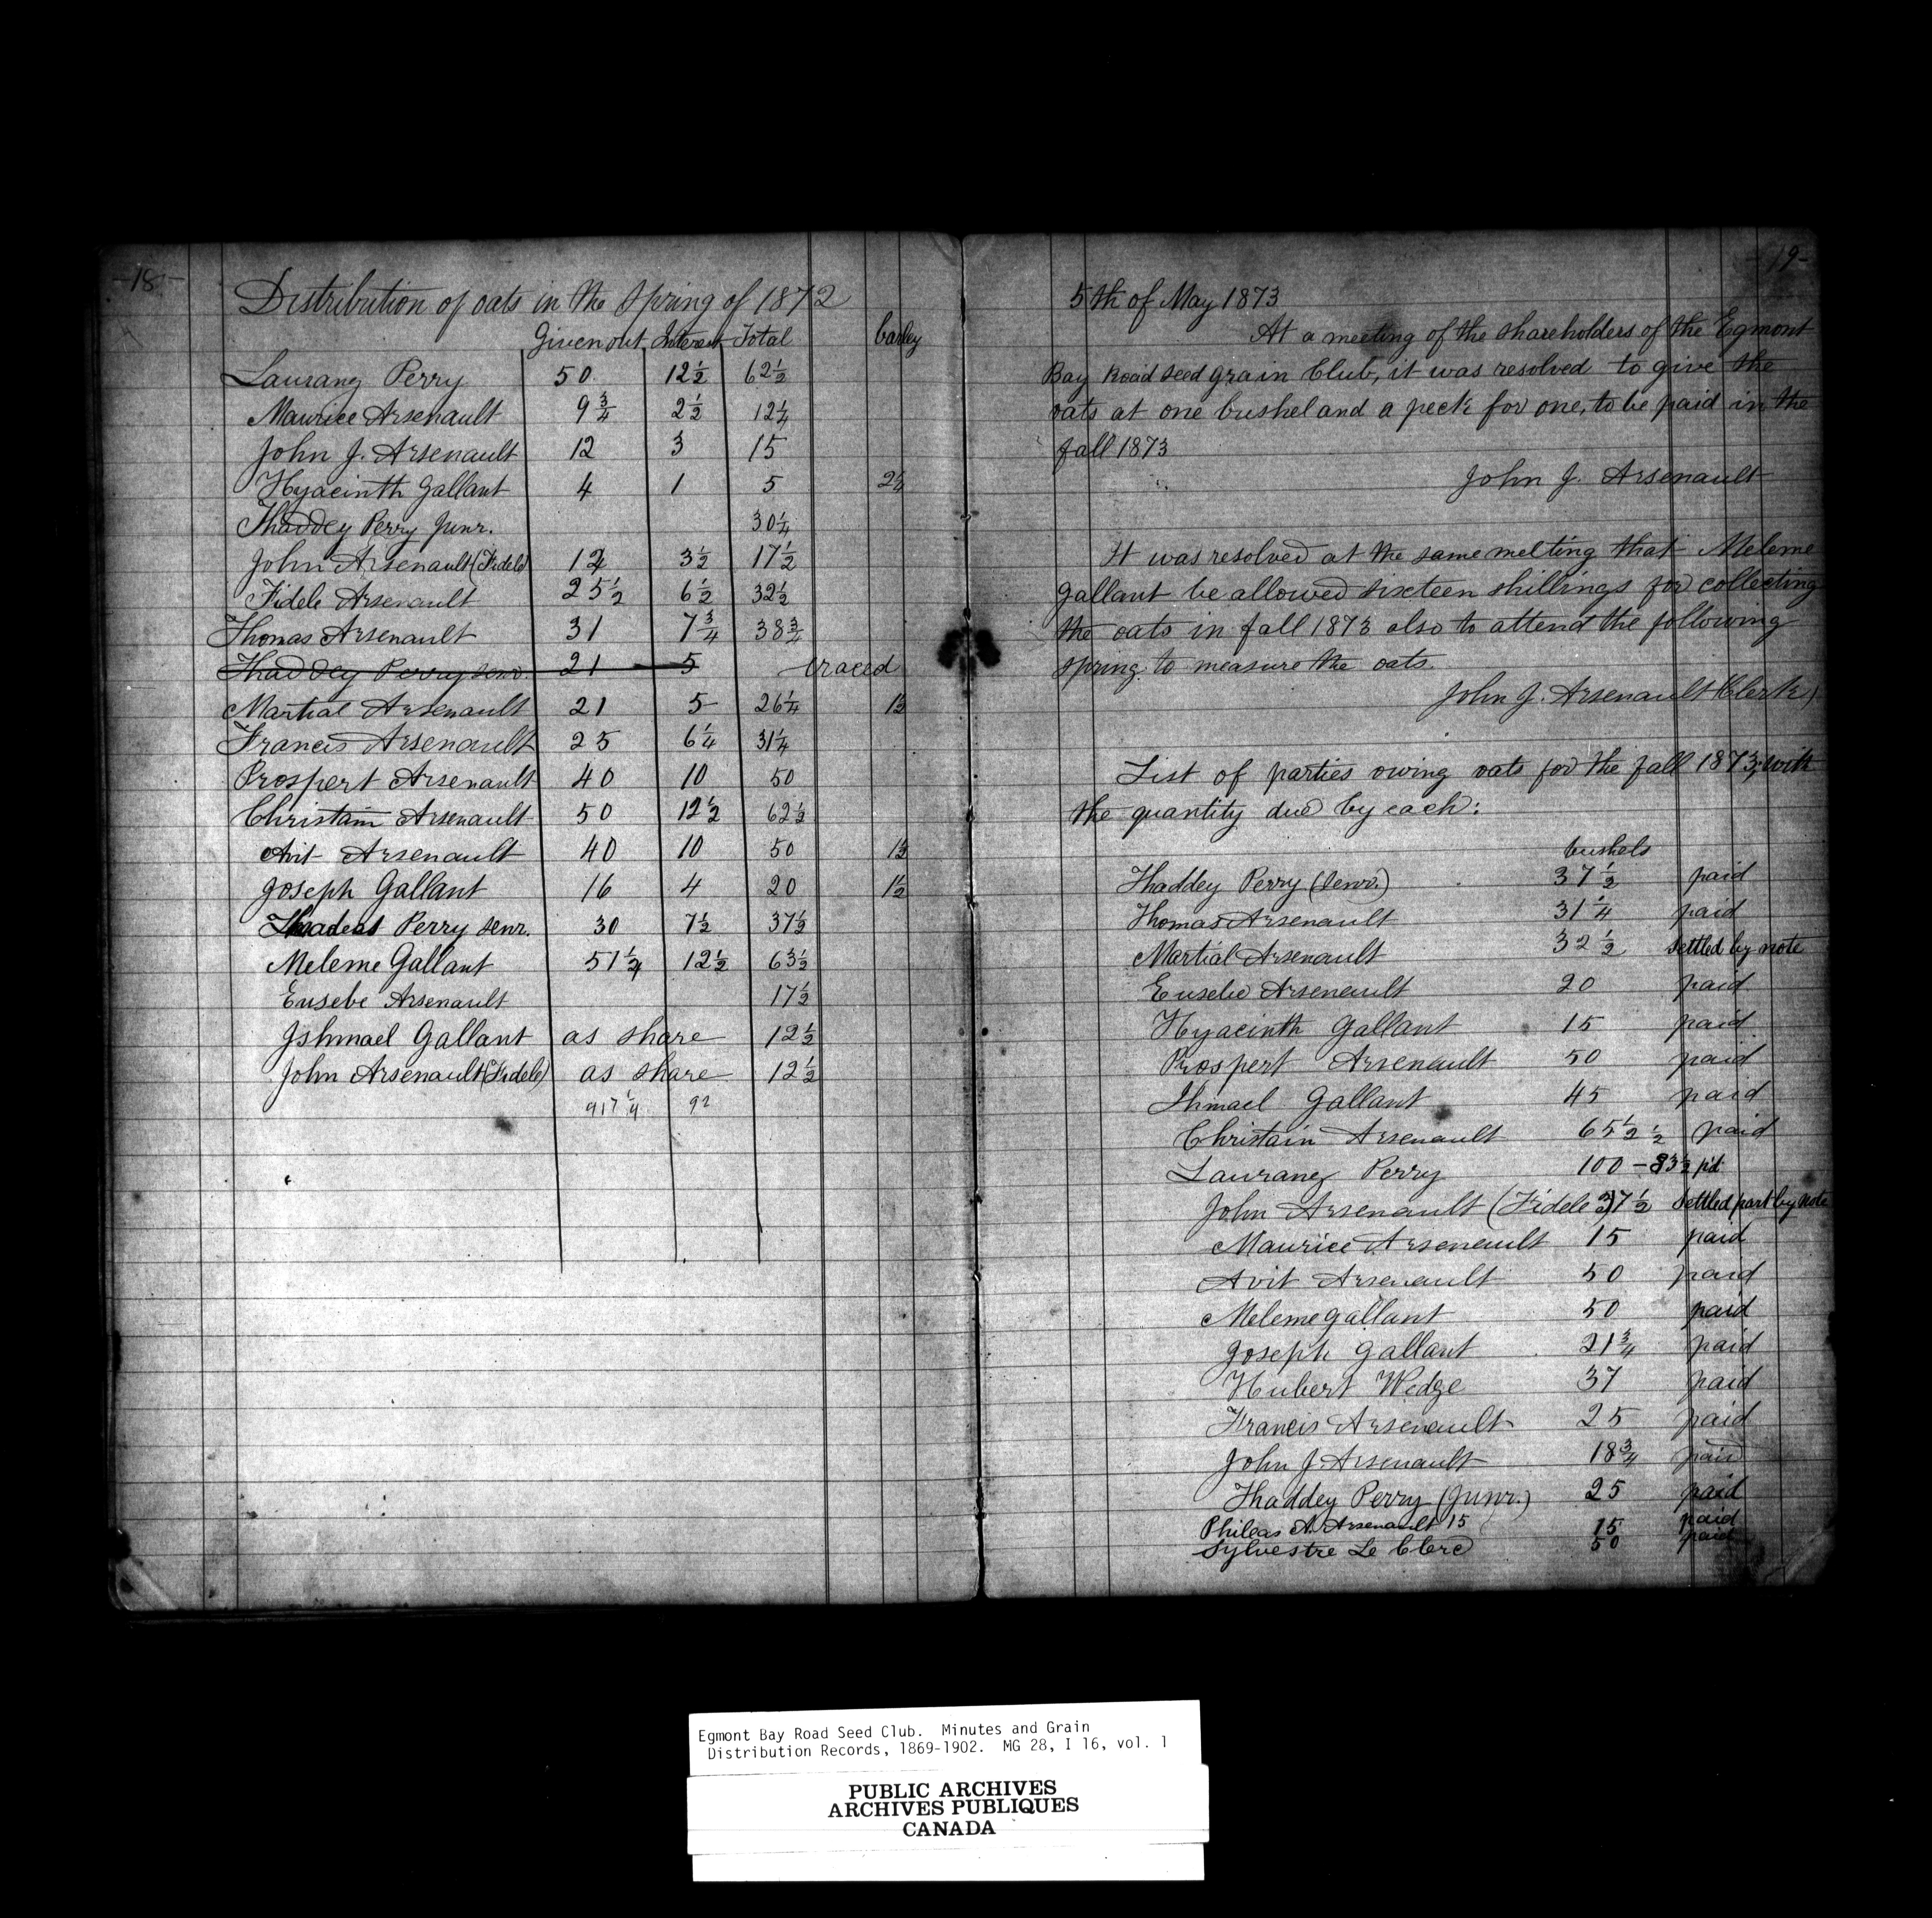 -18-
Distribution of oats in the Spring of 1872
Given out Interest Total barley
Laurang Perry 50 12½ 62½
Maurice Arsenault 9¾ 2½ 12¼
John J. Arsenault 12 3 15
Hyacinth Gallant 4 1 5
Thaddey Perry Junr. 30¼
John Arsenault (Fidele) 3½ 17½
Fidele Arsenault 25½ 6½ 32½
Thomas Arsenault 31 7¾ 38¾
Thaddey Perry senr. 21 5 traced
Martial Arsenault 21 5 26¼ 1½
Francis Arsenault 25 6¼ 31¼
Prospert Arsenault 40 10 50
Christain Arsenault 50 12½ 62½
Avit Arsenault 40 10 50 1½
Joseph Gallant 16 4 20 1½
Thadeas Perry senr. 30 7½ 37½
Meleme Gallant 51¼ 12½ 63½
Eusebe Arsenault 17½
Ishmael Gallant as share 12½
John Arsenault (Fidele) as share 12½
917¼ 92
-19-
5th of May 1873
At a meeting of the shareholders of the Egmont
Bay Road seed grain Club, it was resolved to give the
oats at one bushel and a peck for one, to be paid in the
fall 1873
John J. Arsenault
It was resolved at the same melting that Meleme
Gallant be allowed sixteen shillings for collecting
the oats in fall 1873 also to attend the following
spring to measure the oats.
John J. Arsenault (Clerk)
List of parties owing oats for the fall 1873; with
the quantity due by each:
bushels
Thaddey Perry (Senr.) 37½ paid
Thomas Arsenault 31¼ paid
Martial Arsenault 32½ settled by note
Eusebe Arsenault 20 paid
Hyacinth Gallant 15 paid
Prospert Arsenault 50 paid
Ihmael Gallant 45 paid
Christain Arsenault 65½ ½ paid
Laurang Perry 100 - 83½ pd
John Arsenault (Fidele) 37½ Settled part by note
Maurice Arsenault 15 paid
Avit Arsenault 50 paid
Meleme Gallant 50 paid
Joseph Gallant 21¾ paid
Hubert Wedge 37 paid
Francis Arsenault 25 paid
John J. Arsenault 18¾ paid
Thaddey Perry (Junr.) 25 paid
Phileas A. Arsenault 15 15 paid
Sylvestre Le Clerc 50 paid
Egmont Bay Road Seed Club. Minutes and Grain
Distribution Records, 1869-1902. MG 28, I 16, vol. 1
PUBLIC ARCHIVES
ARCHIVES PUBLIQUES
CANADA